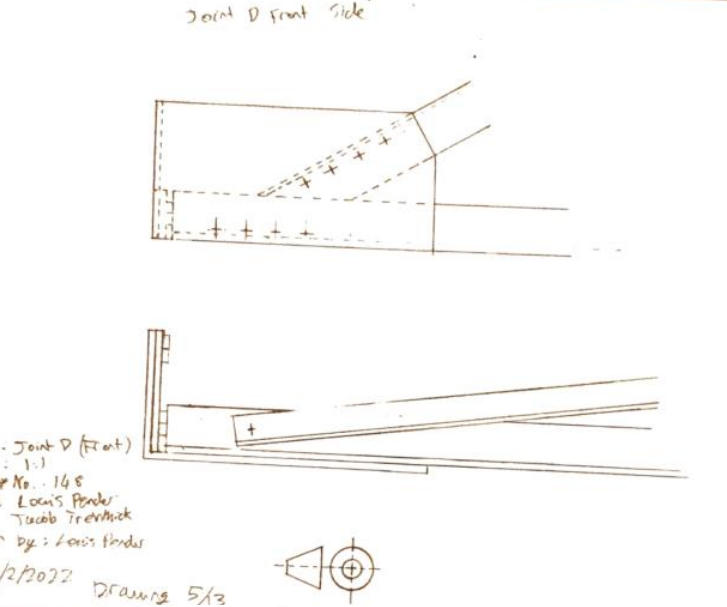 Joint D Front Side
- Joint D (Front)
: 1:1
No.. 148
Louis Pender
Jacob Trenthick
by: Louis Pender
/2/2022
Drawing 5/3